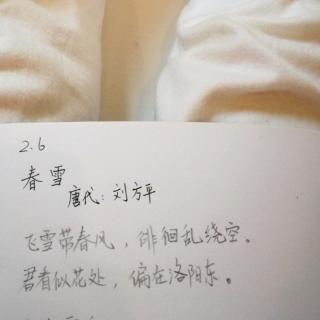 2.6
春雪
唐代：刘方平
飞雪带春风，徘徊乱绕空。
君看似花处，偏在洛阳东。